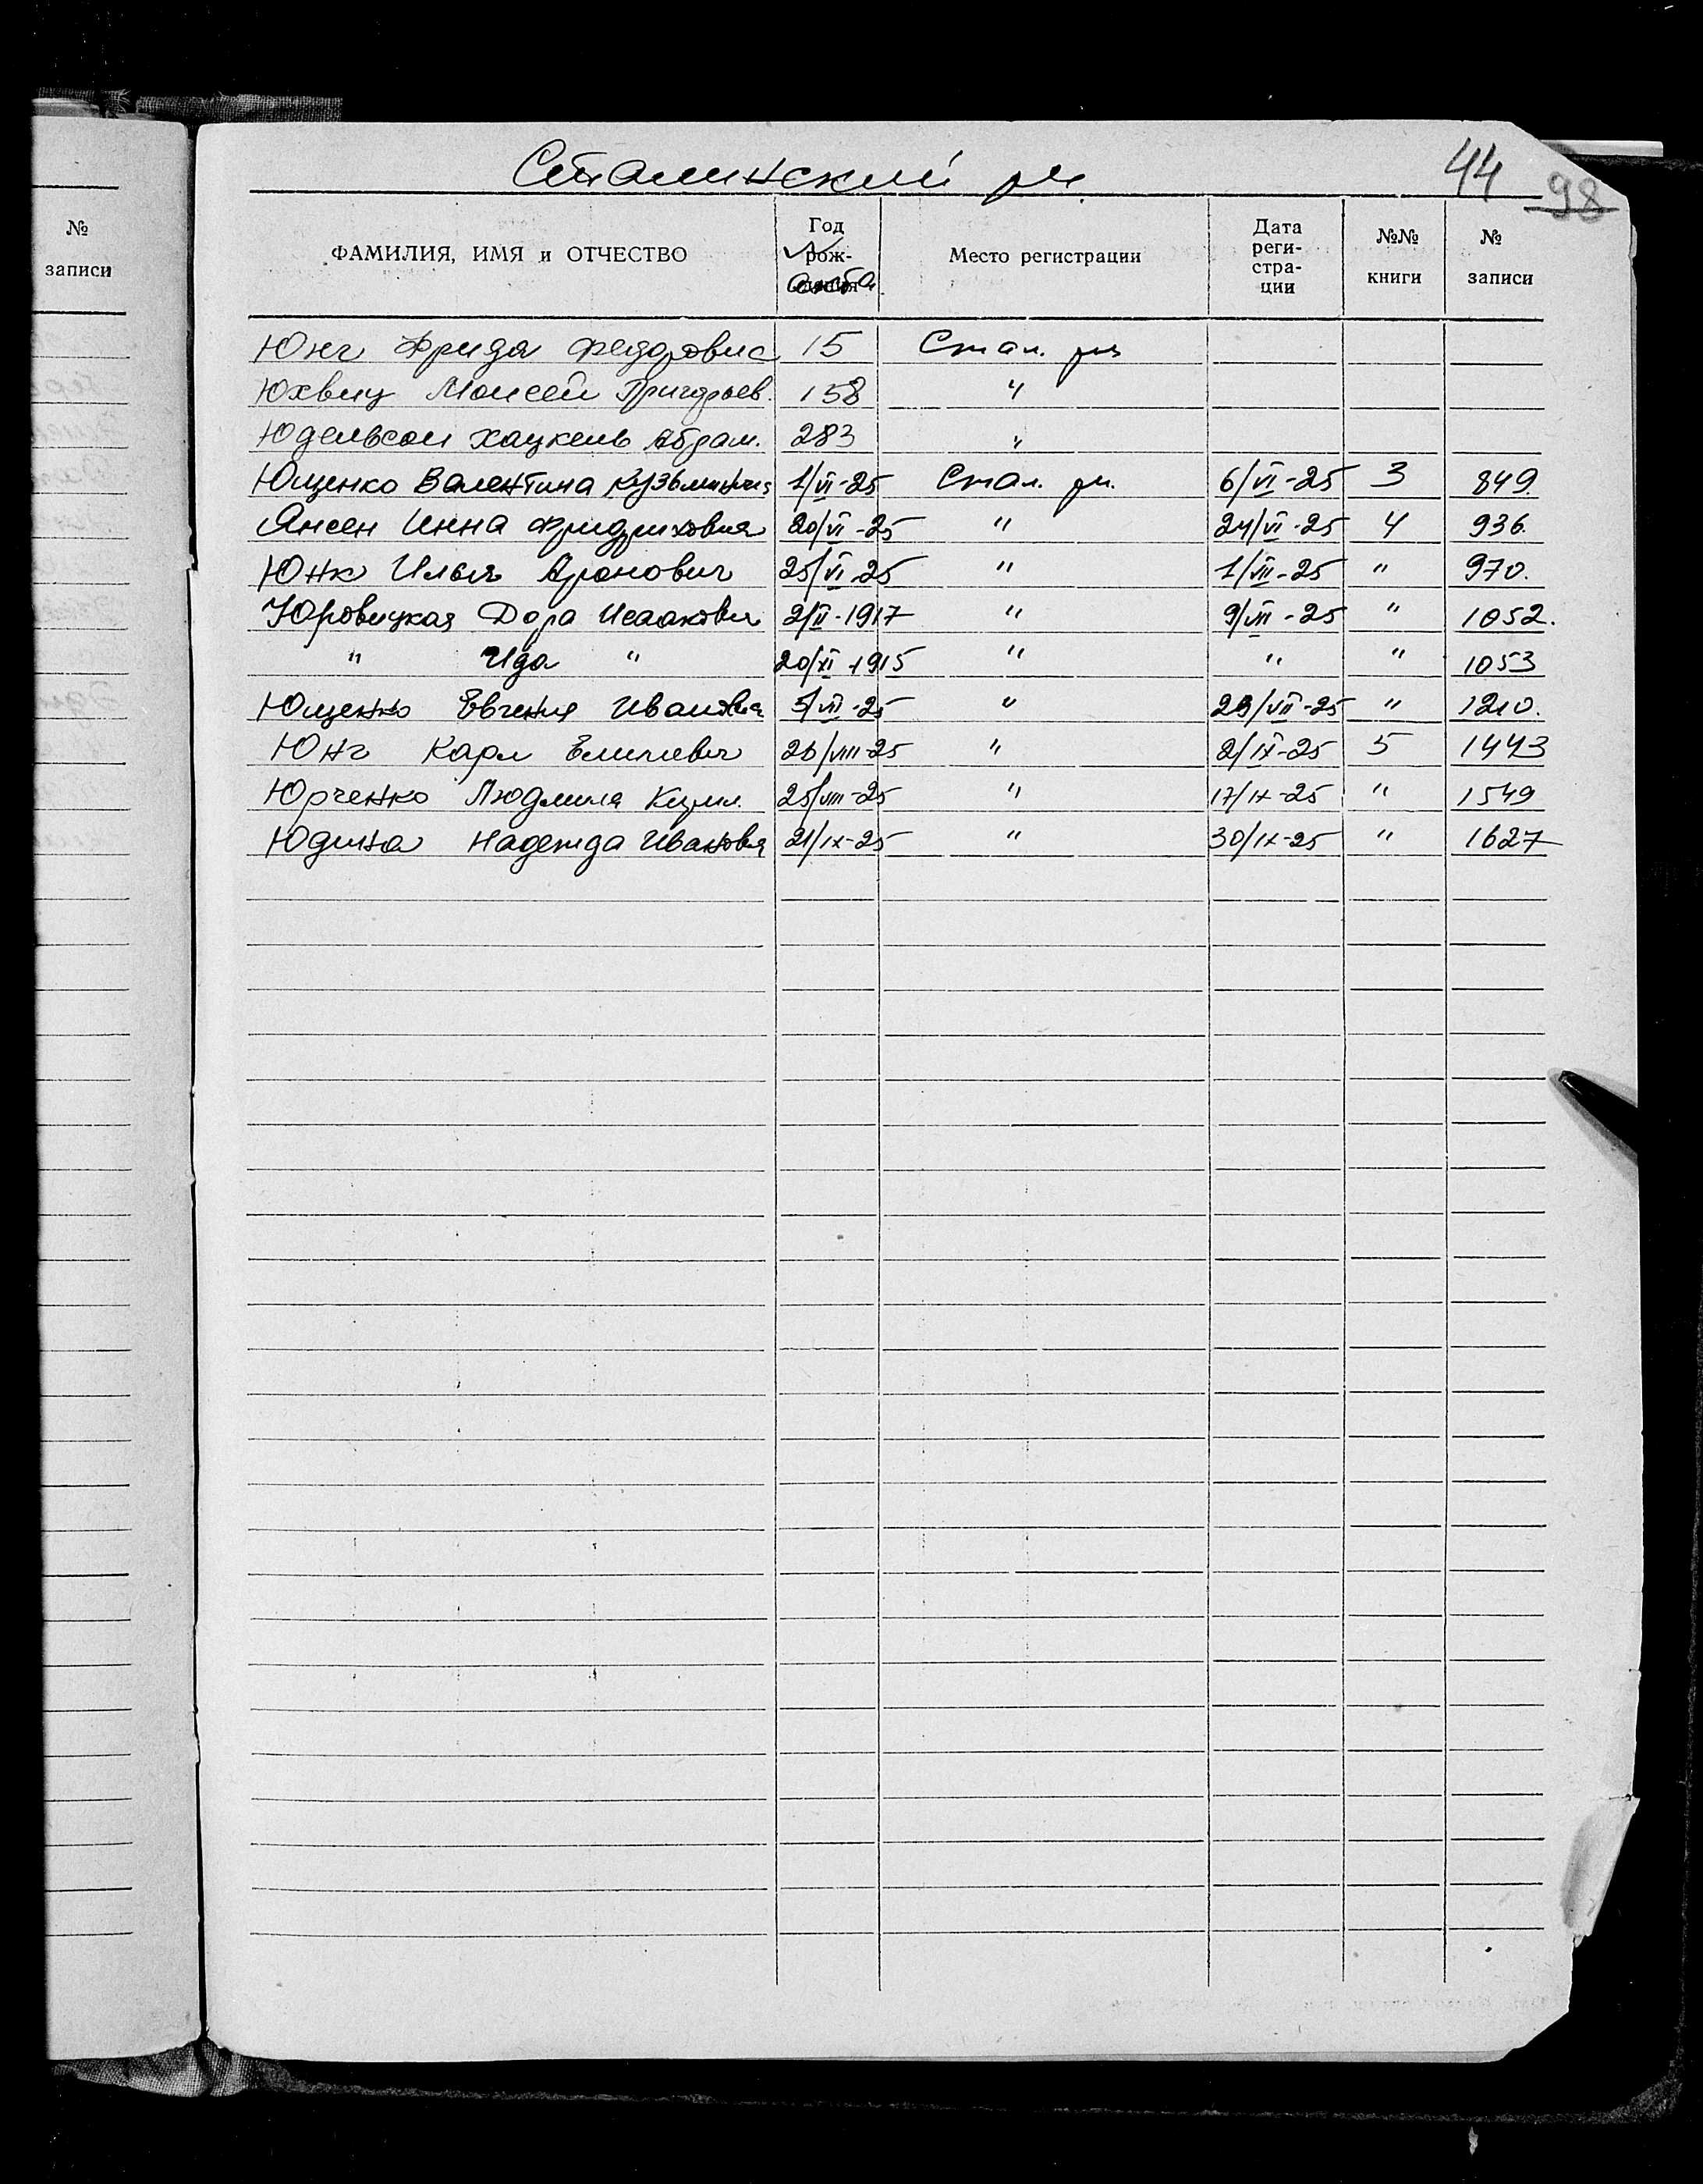 Сталинский рн. 44 98
№ записи
ФАМИЛИЯ, ИМЯ и ОТЧЕСТВО Год рож- Место регистрации Дата реги-стра-ции №№ книги № записи
Юнг Фрида Федоровна 15 Стал. рн
Юхвиц Моисей Григорьев. 158 "
Юдельсон Хацкель Абрам. 283 "
Ющенко Валентина Кузьминична 1/VI-25 Стал. рн. 6/VI-25 3 849.
Янсен Инна Фридриховна 20/VI-25 " 24/VI-25 4 936.
Юнк Илья Аронович 25/VI-25 " 1/VII-25 " 970.
Юровицкая Дора Исааковн 2/II-1917 " 9/VII-25 " 1052.
" Ида " 20/XI-1915 " " " 1053
Ющенко Евгения Ивановна 5/VII-25 " /VII-25 " 1210.
Юнг Карл 26/VIII-25 " 2/IX-25 5 1443
Юрченко Людмила Кирил. 25/VIII-25 " 17/IX-25 " 1549
Юдина Надежда Ивановна 21/IX-25 " 30/IX-25 " 1627